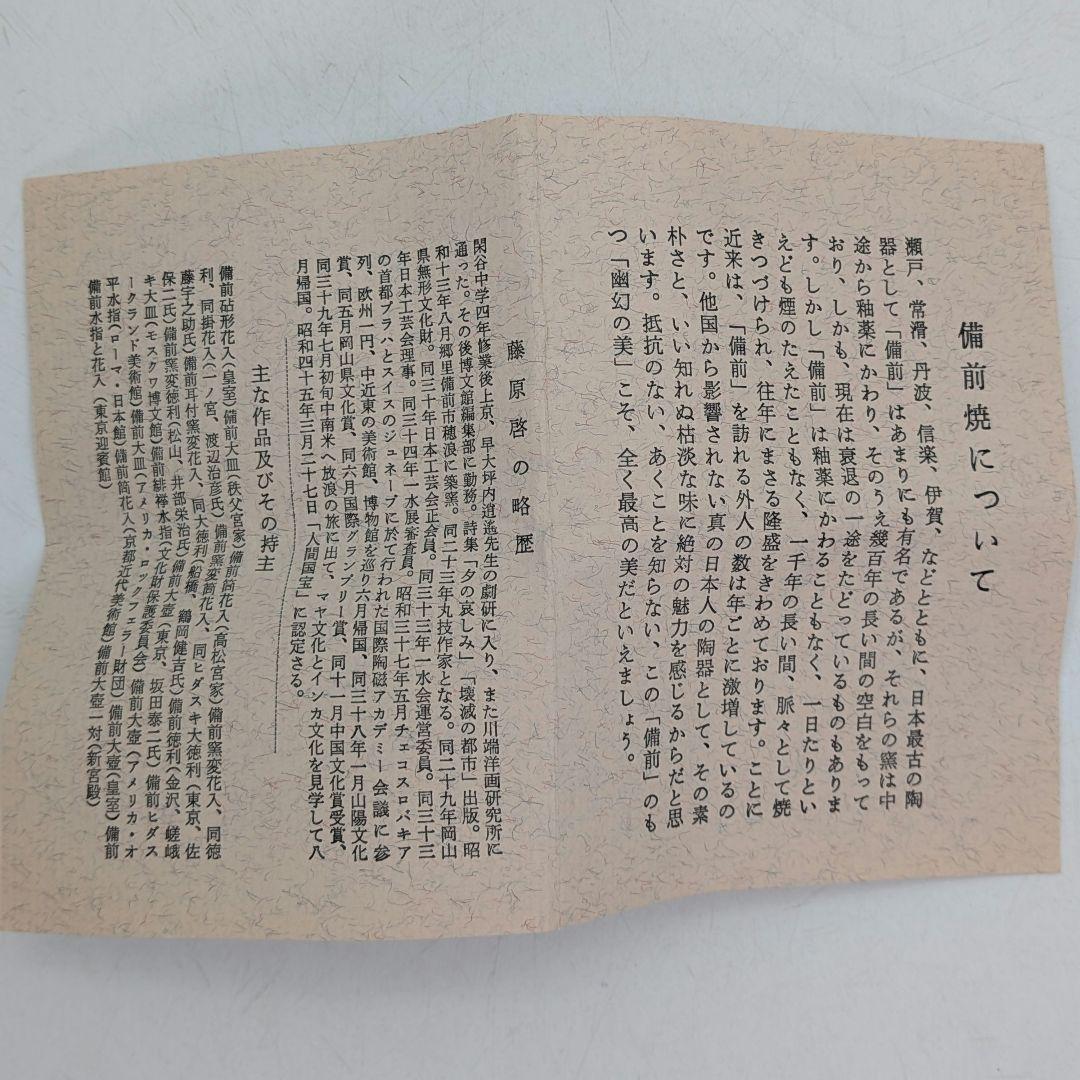 備前焼について
瀬戸、常滑、丹波、信楽、伊賀、などとともに、日本最古の陶
器として「備前」はあまりにも有名であるが、それらの窯は中
途から釉薬にかわり、そのうえ幾百年の長い間の空白をもって
おり、しかも、現在は衰退の一途をたどっているものもありま
す。しかし「備前」は釉薬にかわることもなく、一日たりとい
えども煙のたえたこともなく、一千年の長い間、脈々として焼
きつづけられ、往年にまさる隆盛をきわめております。ことに
近来は、「備前」を訪れる外人の数は年ごとに激増しているの
です。他国から影響されない真の日本人の陶器として、その素
朴さと、いい知れぬ枯淡な味に絶対の魅力を感じるからだと思
います。抵抗のない、あくことを知らない、この「備前」のも
つ「幽幻の美」こそ、全く最高の美だといえましょう。
藤原啓の略歴
閑谷中学四年修業後上京、早大坪内逍遙先生の劇研に入り、また川端洋画研究所に
通った。その後博文館編集部に勤務。詩集「夕の哀しみ」「壊滅の都市」出版。昭
和十三年八月郷里備前市穂浪に築窯。同二十三年丸技作家となる。同二十九年岡山
県無形文化財。同三十年日本工芸会正会員。同三十三年一水会運営委員。同三十三
年日本工芸会理事。同三十四年一水展審査員。昭和三十七年五月チェコスロバキア
の首都プラハとスイスのジュネーブに於て行われた国際陶磁アカデミー会議に参
列、欧州一円、中近東の美術館、博物館を巡り六月帰国、同三十八年一月山陽文化
賞、同五月岡山県文化賞、同六月国際グランプリー賞、同十一月中国文化賞受賞、
同三十九年七月初旬中南米へ放浪の旅に出て、マヤ文化とインカ文化を見学して八
月帰国。昭和四十五年三月二十七日「人間国宝」に認定さる。
主な作品及びその持主
備前砧形花入(皇室)備前大皿(秩父宮家)備前筒花入(高松宮家)備前窯変花入、同徳
利、同掛花入(一ノ宮、渡辺治彦氏)備前窯変筒花入、同ヒダスキ大徳利(東京、佐
藤宇之助氏)備前耳付窯変花入、同大徳利(船橋、鶴岡健吉氏)備前徳利(金沢、嵯峨
保二氏)備前窯変徳利(松山、井部栄治氏)備前大壺(東京、坂田泰二氏)備前ヒダス
キ大皿(モスクワ博文館)備前緋襷水指(文化財保護委員会)備前大壺(アメリカ・オ
ークランド美術館)備前大皿(アメリカ・ロックフェラー財団)備前大壺(皇室)備前
平水指(ローマ・日本館)備前筒花入(京都近代美術館)備前大壺一対(新宮殿)
備前水指と花入(東京迎賓館)